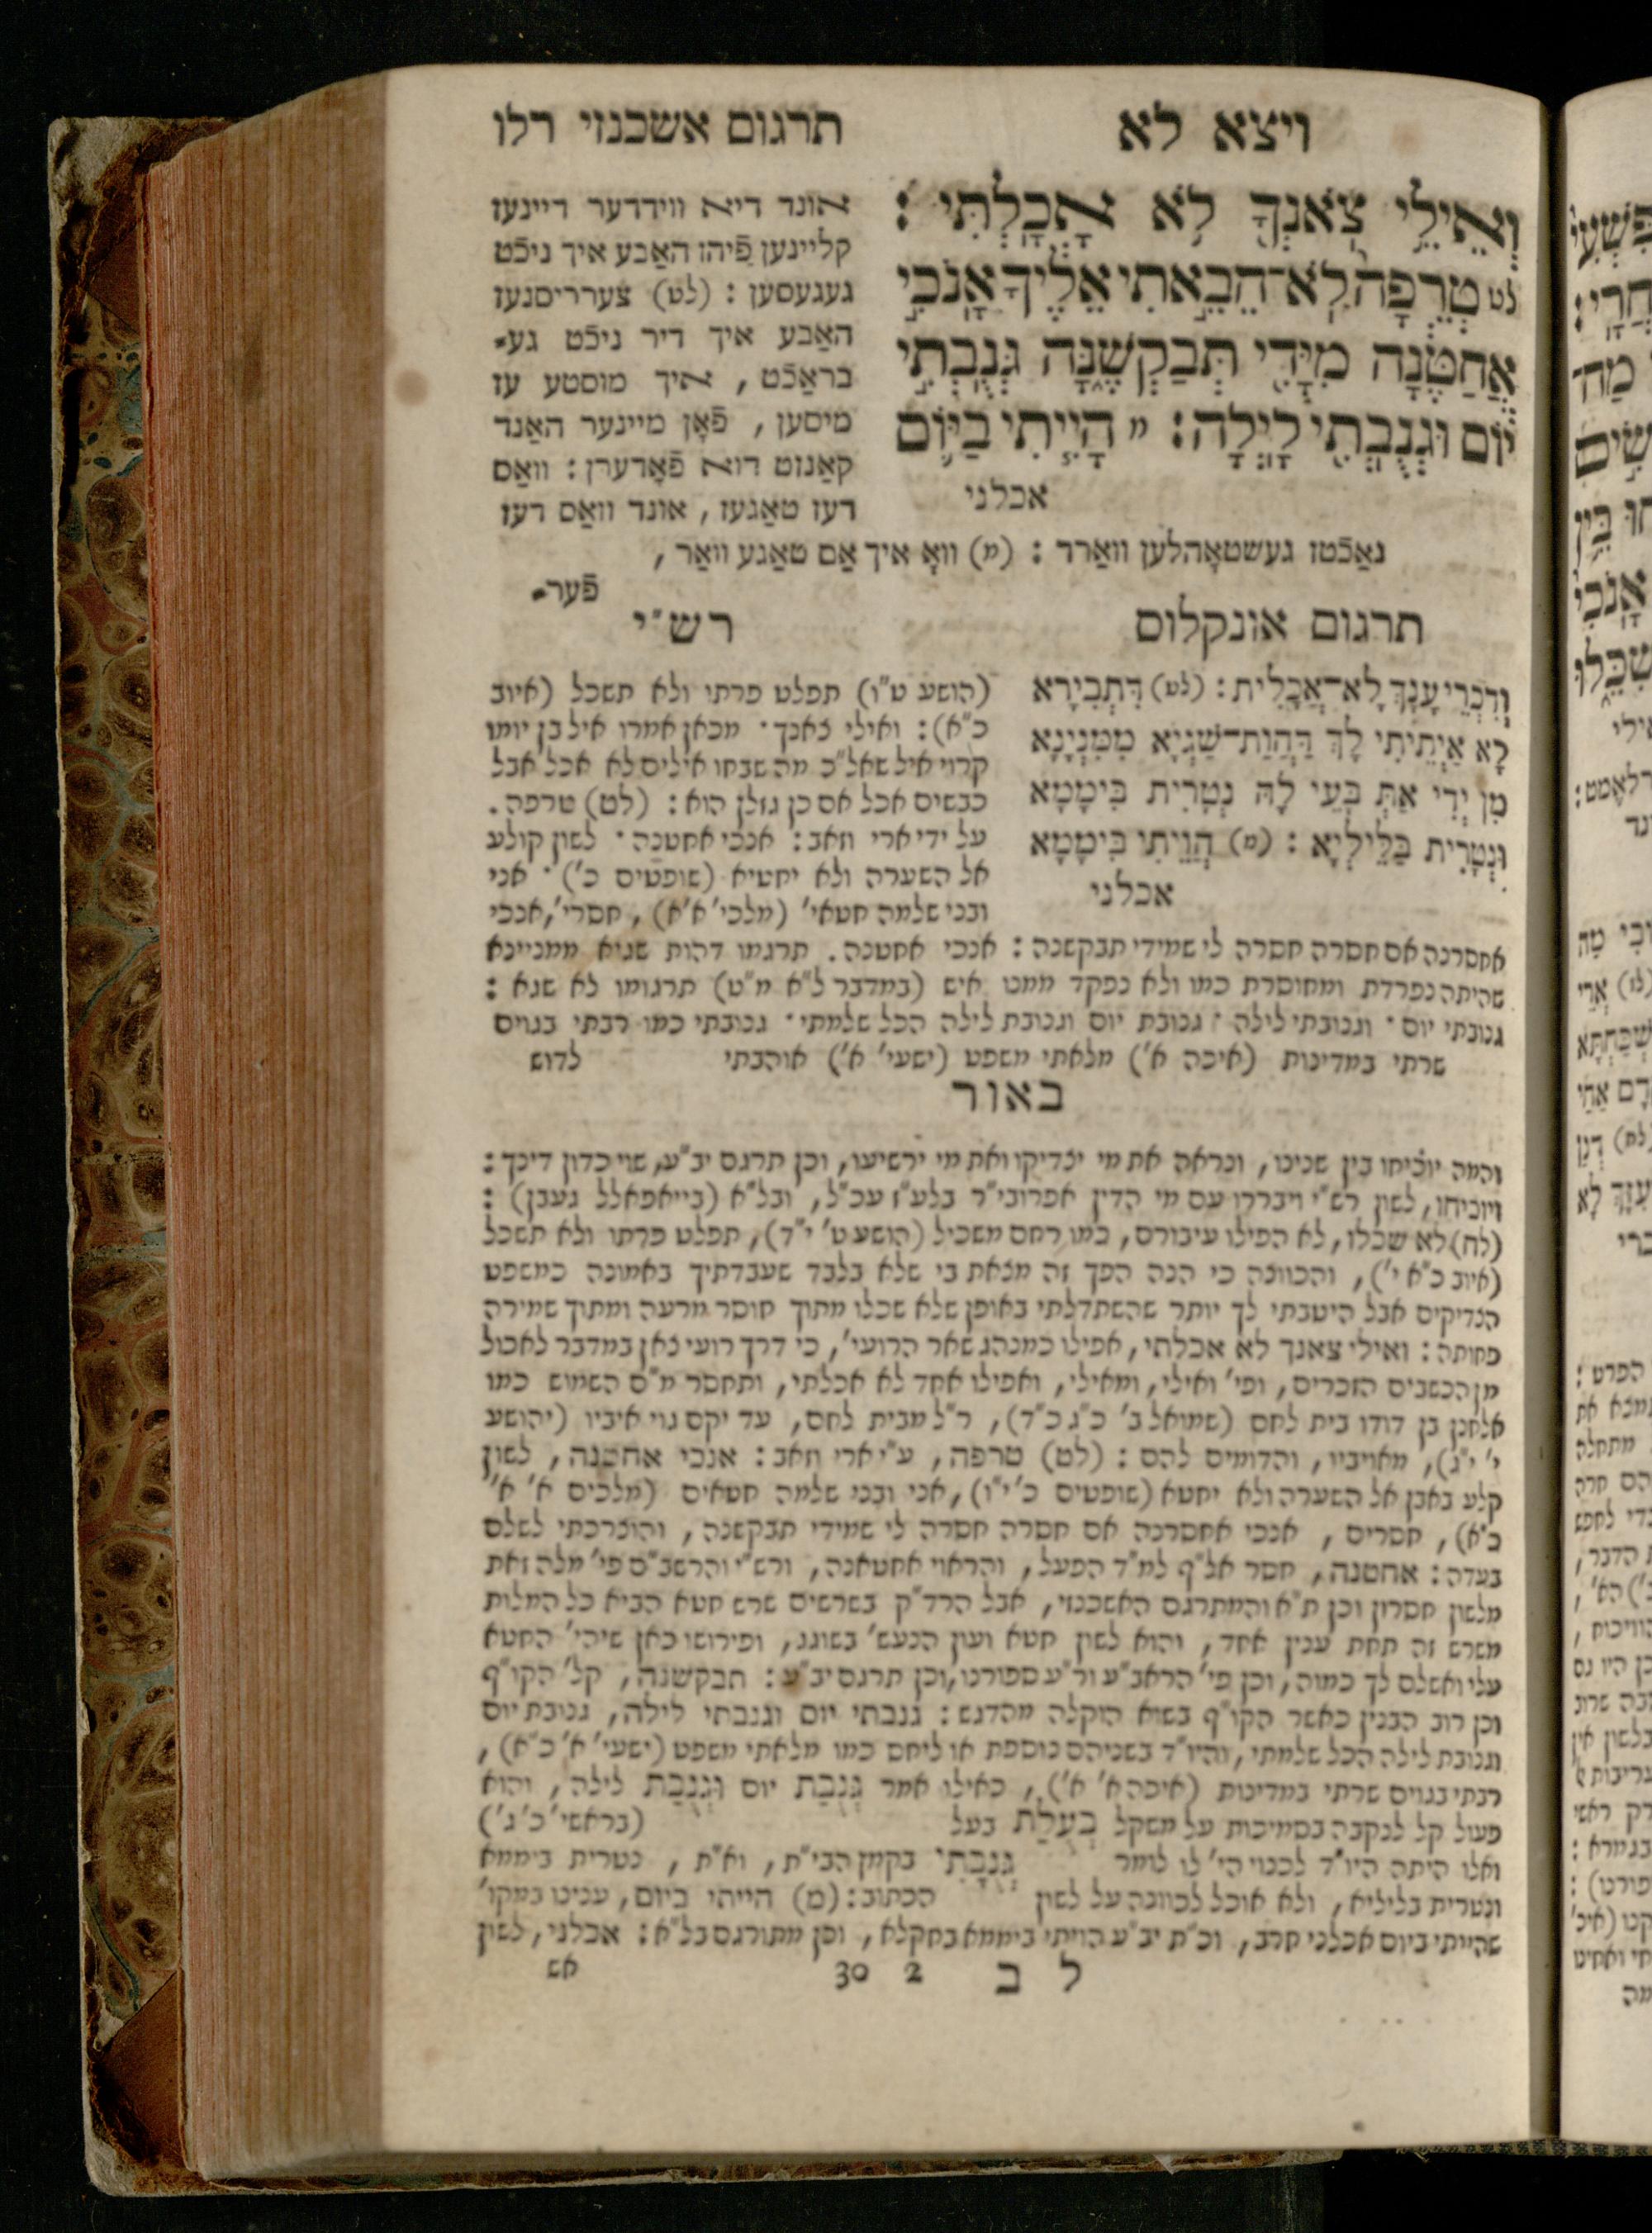 ויצא לא
תרגום אשכנזי רלו
וְאֵילֵי צֹאנְךָ לֹא אָכָלְתִּי :
לט טְרֵפָה לֹא־הֵבֵאתִי אֵלֶיךָ אָנֹכִי
אֲחַטֶּנָּה מִיָּדִי תְּבַקְשֶׁנָּה גְּנֻבְתִי
יוֹם וּגְנֻבְתִי לָיְלָה : מ הָיִיתִי בַיּוֹם
אכלני
אונד דיא ווידדער דיינעז
קליינען פֿיהז האַבע איך ניכֿט
געגעסען : (לט) צערריסנעז
האַבע איך דיר ניכֿט גע-
בראַכֿט , איך מוסטע עז
מיסען , פֿאָן מיינער האַנד
קאַנזט דוא פֿאָדערן : וואַס
דעז טאַגעז , אונד וואַס דעז
נאַכֿטז געשטאָהלען וואַרד : (מ) וואָ איך אַם טאַגע וואַר ,
פֿער-
תרגום אונקלוס
וְדִכְרֵי עָנָךְ לָא־אֲכָלִית : (לט) דִּתְבִירָא
לָא אַיְתֵיתִי לָךְ דַּהֲוַת־שַׁגְיָא מִמִּנְיָנָא
מִן יְדִי אַתְּ בָּעֵי לָהּ נְטָרִית בִּימָמָא
וּנְטָרִית בְּלֵילְיָא : (מ) הֲוֵיתִי בִּימָמָא
אכלני
רש״י
(הושע ט״ו) תפלט פרתו ולא תשכל (איוב
כ״א) : ואילי צאנך · מכאן אמרו איל בן יומו
קרוי איל שאל״כ מה שבחו אילים לא אכל אבל
כבשים אכל אם כן גזלן הוא : (לט) טרפה .
על ידי ארי וזאב : אנכי אחטנה · לשון קולע
אל השערה ולא יחטיא (שופטים כ׳) · אני
ובני שלמה חטאי׳ (מלכי׳ א׳ א) , חסרי׳, אנכי
אחסרנה אם חסרה חסרה לי שמידי תבקשנה : אנכי אחטנה . תרגמו דהות שגיא ממניינא
שהיתה נפרדת ומחוסרת כמו ולא נפקד ממנו איש (במדבר ל״א מ״ט) תרגומו לא שגא :
גנובתי יום · וגנובתי לילה · גנובת יום וגנובת לילה הכל שלמתי · גנובתי כמו רבתי בגוים
שרתי במדינות (איכה א׳) מלאתי משפט (ישעי׳ א׳) אוהבתי לדוש
באור
והמה יוכיחו בין שנינו , ונראה את מי יצדיקו ואת מי ירשיעו , וכן תרגם יב״ע, שוי כדון דינך :
ויוכיחו , לשון רש״י ויבררו עם מי הדין אפרובי״ר בלע״ז עכ״ל , ובל״א (בייאפאלל געבן) :
(לח) לא שכלו , לא הפילו עיבורם , כמו רחם משכיל (הושע ט׳ י״ד) , תפלט פרתו ולא תשכל
(איוב כ״א י׳) , והכוונה כי הנה הפך זה מצאת בי שלא בלבד שעבדתיך באמונה כמשפט
הצדיקים אבל היטבתי לך יותר שהשתדלתי באופן שלא שכלו מתוך חוסר מרעה ומתוך שמירה
פחותה : ואילי צאנך לא אכלתי , אפילו כמנהג שאר הרועי׳ , כי דרך רועי צאן במדבר לאכול
מן הכשבים הזכרים , ופי׳ ואילי , ומאילי , ואפילו אחד לא אכלתי , ותחסר מ״ם השמוש כמו
אלחנן בן דודו בית לחם (שמואל ב׳ כ״ג כ״ד) , ר״ל מבית לחם , עד יקם גוי איביו (יהושע
י׳ י״ג) , מאויביו , והדומים להם : (לט) טרפה , ע״י ארי וזאב : אנכי אחטנה , לשון
קלע באבן אל השערה ולא יחטא (שופטים כ׳ י״ו) , אני ובני שלמה חטאים (מלכים א׳ א׳
כ״א) , חסרים , אנכי אחסרנה אם חסרה חסרה לי שמידי תבקשנה , והוצרכתי לשלם
בעדה : אחטנה , חסר אל״ף למ״ד הפעל , והראוי אחטאנה , ורש״י והרשב״ם פי׳ מלה זאת
מלשון חסרון וכן ת״א והמתרגם האשכנזי , אבל הרד״ק בשרשים שרש חטא הביא כל המלות
משרש זה תחת ענין אחד , והוא לשון חטא ועון הנעש׳ בשוגג , ופירושו כאן שיהי׳ החטא
עלי ואשלם לך כמוה , וכן פי׳ הראב״ע ור״ע ספורנו , וכן תרגם יב״ע : תבקשנה , קל׳ הקו״ף
וכן רוב הבנין כאשר הקו״ף בשוא הוקלה מהדגש : גנבתי יום וגנבתי לילה , גנובת יום
וגנובת לילה הכל שלמתי , והיו״ד בשניהם נוספת או ליחם כמו מלאתי משפט (ישעי׳ א׳ כ״א) ,
רבתי בגוים שרתי במדינות (איכה א׳ א׳) , כאילו אמר גְּנֻבַת יום וּגְנֻבַת לילה , והוא
פעול קל לנקבה בסמיכות על משקל בְּעֻלַת בעל (בראשי׳ כ׳ ג׳)
ואלו היתה היו״ד לכנוי הי׳ לו לומר גְּנֻבָתִי בקמץ הבי״ת , וא״ת , נטרית ביממא
ונטרית בליליא , ולא אוכל לכוונה על לשון הכתוב : (מ) הייתי ביום , ענינו במקו׳
שהייתי ביום אכלני חרב , וכ״ת יב״ע הויתי ביממא בחקלא , וכן מתורגם בל״א : אכלני , לשון
ל ב 2 30 אש